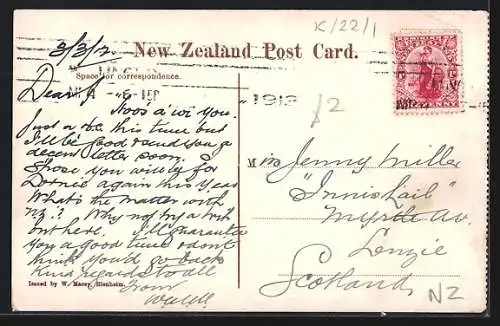 K/22/1
3/3/12.
New Zealand Post Card.
Space for correspondence.
Dear J
Hoo's a' wi you.
Just a p.c. this time but
I'll be good & send you a
decent letter soon.
I 'spose you will be for
again this year
What's the matter with
N.Z.? Why not try a trip
out here. I'll guarantee
you a good time & don't
think you'd go back
Kind regards to all
from
1912
/2
Miss Jenny Miller
"Innishail"
Myrtle Av.
Lenzie
Scotland
NZ
Issued by W. Macey, Blenheim.